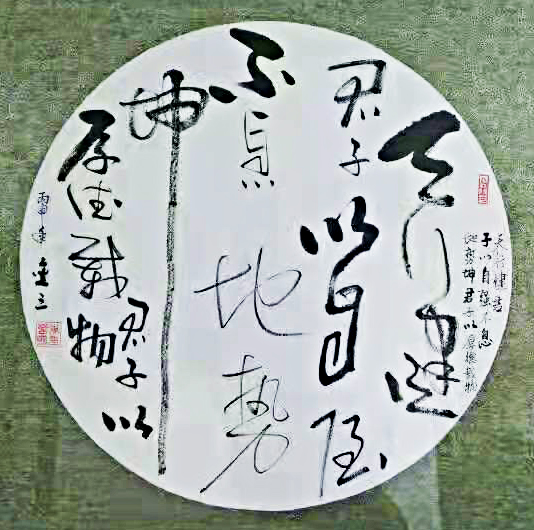 天行健
君子以自强
不息地勢
坤
君子以
厚德載物
丙申
天行健君
子以自强不息
地勢坤君子以厚德載物